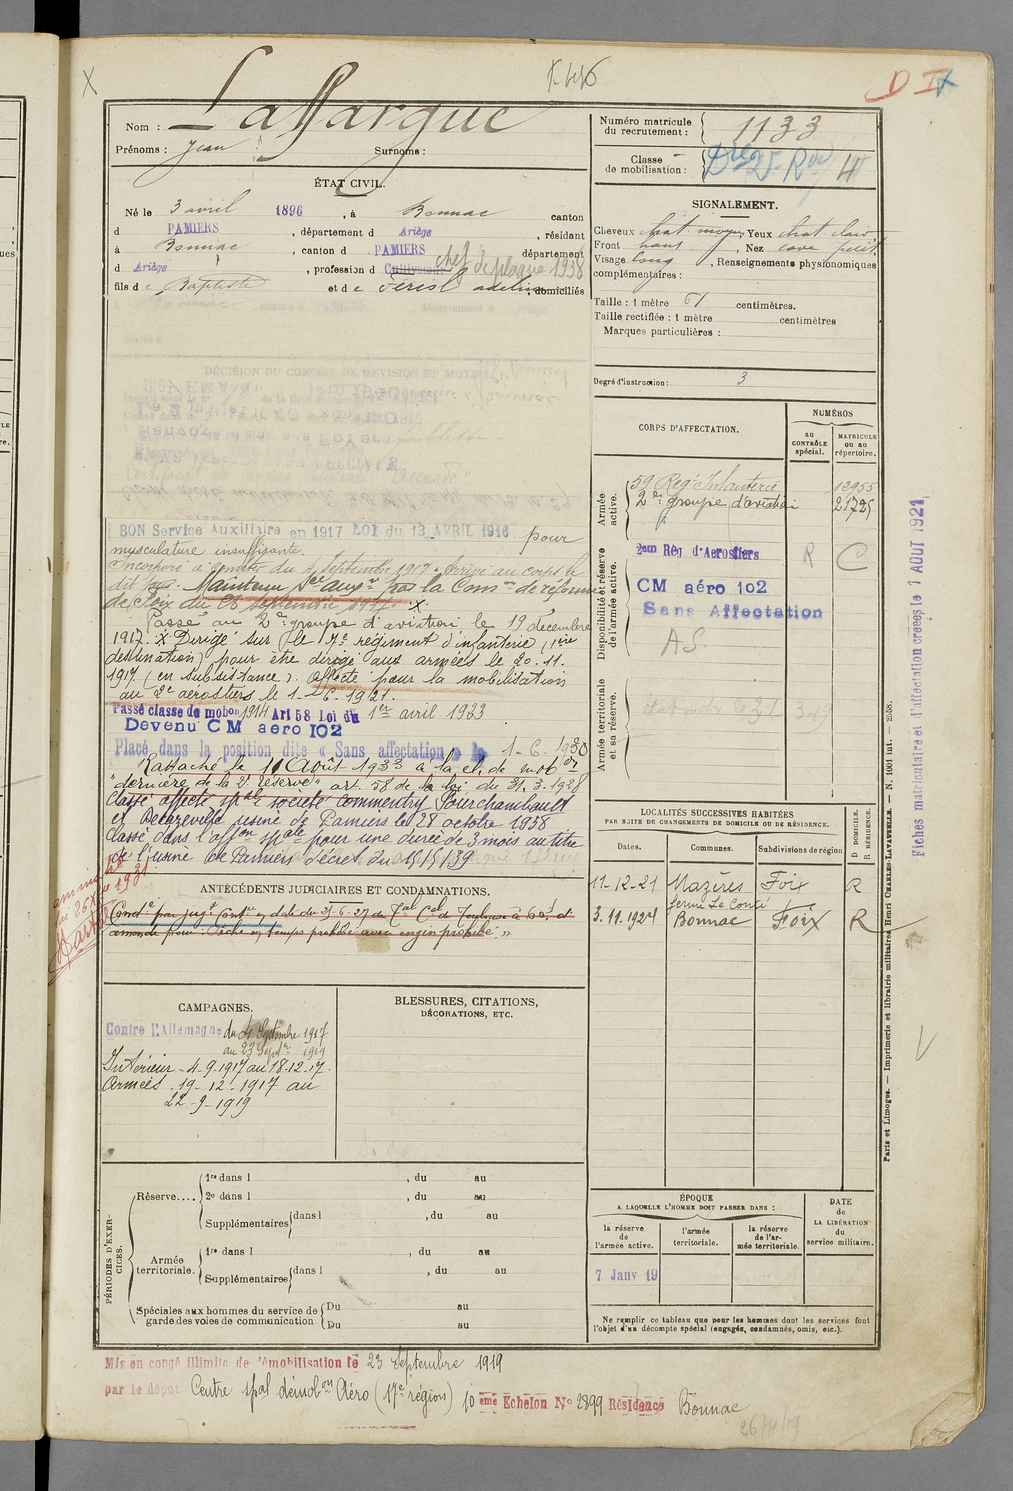 Nom : Laffargue
Prénoms : Jean Surnoms :
ÉTAT CIVIL.
Né le 3 avril 1896, à Bonnac canton
d PAMIERS, département d Ariège, résidant
à Bonnac, canton d PAMIERS département
d Ariège, profession d Cultivateur chef de plaque 1938
fils de Baptiste et de adeline, domiciliés
DÉCISION DU CONSEIL DE RÉVISION ET MOTIFS
BON Service Auxiliaire en 1917 LOI du 13 AVRIL 1916 pour
musculature insuffisante.
Incorporé à compter du 4 septembre 1917. Arrivé au corps le
dit jour. Maintenu Sce auxre par la Comon de réforme
de Foix du 26 septembre 1917. X
Passé au 2e groupe d'aviation le 19 décembre
1917. X Dirigé sur le 7e régiment d'infanterie (1ère
destination) pour être dirigé aux armées le 20.11.
1917 (en subsistance). affecté pour la mobilisation
au 2e aerostiers le 1-6-1921.
Passé classe de mobon 1914 Art 58 Loi du 1er avril 1923
Devenu CM aero 102
Placé dans la position dite « Sans affectation » le 1-6-1930
Rattaché le 10 Août 1933 à la cl. de mobon
"dernière de la 2e réserve" art. 58 de la loi du 31.3.1928
Classé affecté spale société Commentry Fourchambault
et Decazeville usine de Pamiers le 28 octobre 1938
Classé dans l'affon spale pour une durée de 3 mois au titre
de l'usine de Pamiers décret du 15/5/39
ANTÉCÉDENTS JUDICIAIRES ET CONDAMNATIONS.
Condé par jugt Contre en date du 25-6-27 du Tal Cel de Toulouse à 60f d'
amende pour : Pêche en temps prohibé avec engin prohibé."
CAMPAGNES.
Contre l'Allemagne du 4 Septembre 1917
au 23 Septbre 1919
Intérieur - 4.9.1917 au 18.12.17.
Armées . 19-12-1917 au
22-9-1919
BLESSURES, CITATIONS,
DÉCORATIONS, ETC.
PÉRIODES D'EXERCICES.
Réserve....
1re dans l , du au
2e dans l , du au
Supplémentaires dans l , du au
Armée territoriale.
1re dans l , du au
Supplémentaires dans l , du au
Spéciales aux hommes du service de garde des voies de communication
Du au
Du au
Mis en congé illimité de démobilisation le 23 Septembre 1919
par le dépot Centre spal démobon Aéro (17e région) 10 eme Echelon No 2899 Résidence Bonnac
26/11/19
Numéro matricule du recrutement : 1133
Classe de mobilisation :
D I
SIGNALEMENT.
Cheveux chat. moyen Yeux chat clair
Front haut, Nez cave petit
Visage long, Renseignements physionomiques
complémentaires :
Taille : 1 mètre 61 centimètres.
Taille rectifiée : 1 mètre centimètres
Marques particulières :
Degré d'instruction : 3
CORPS D'AFFECTATION.
NUMÉROS
AU CONTRÔLE spécial.
MATRICULE ou au répertoire.
Armée active.
59 Reg. Infanterie 12955
2e groupe d'aviation 21725
Disponibilité et réserve de l'armée active.
2em Rég d'Aerostiers R C
CM aéro 102
Sans Affectation
AS.
Armée territoriale et sa réserve.
LOCALITÉS SUCCESSIVES HABITÉES
PAR SUITE DE CHANGEMENTS DE DOMICILE OU DE RÉSIDENCE.
Dates. Communes. Subdivisions de région
D DOMICILE.
R RÉSIDENCE.
11-12-21 Mazères Foix R
ferme Le Conté
3.11.1924 Bonnac Foix R
ÉPOQUE
A LAQUELLE L'HOMME DOIT PASSER DANS :
la réserve de l'armée active.
l'armée territoriale.
la réserve de l'armée territoriale.
DATE de LA LIBÉRATION du service militaire.
7 Janv 19
Ne remplir ce tableau que pour les hommes dont les services font
l'objet d'un décompte spécial (engagés, condamnés, omis, etc.).
Fiches matriculaire et d'affectation créées le 1 AOUT 1921
Paris et Limoges. — Imprimerie et librairie militaires Henri CHARLES-LAVAUZELLE. — N. 1001 int. — 2558.